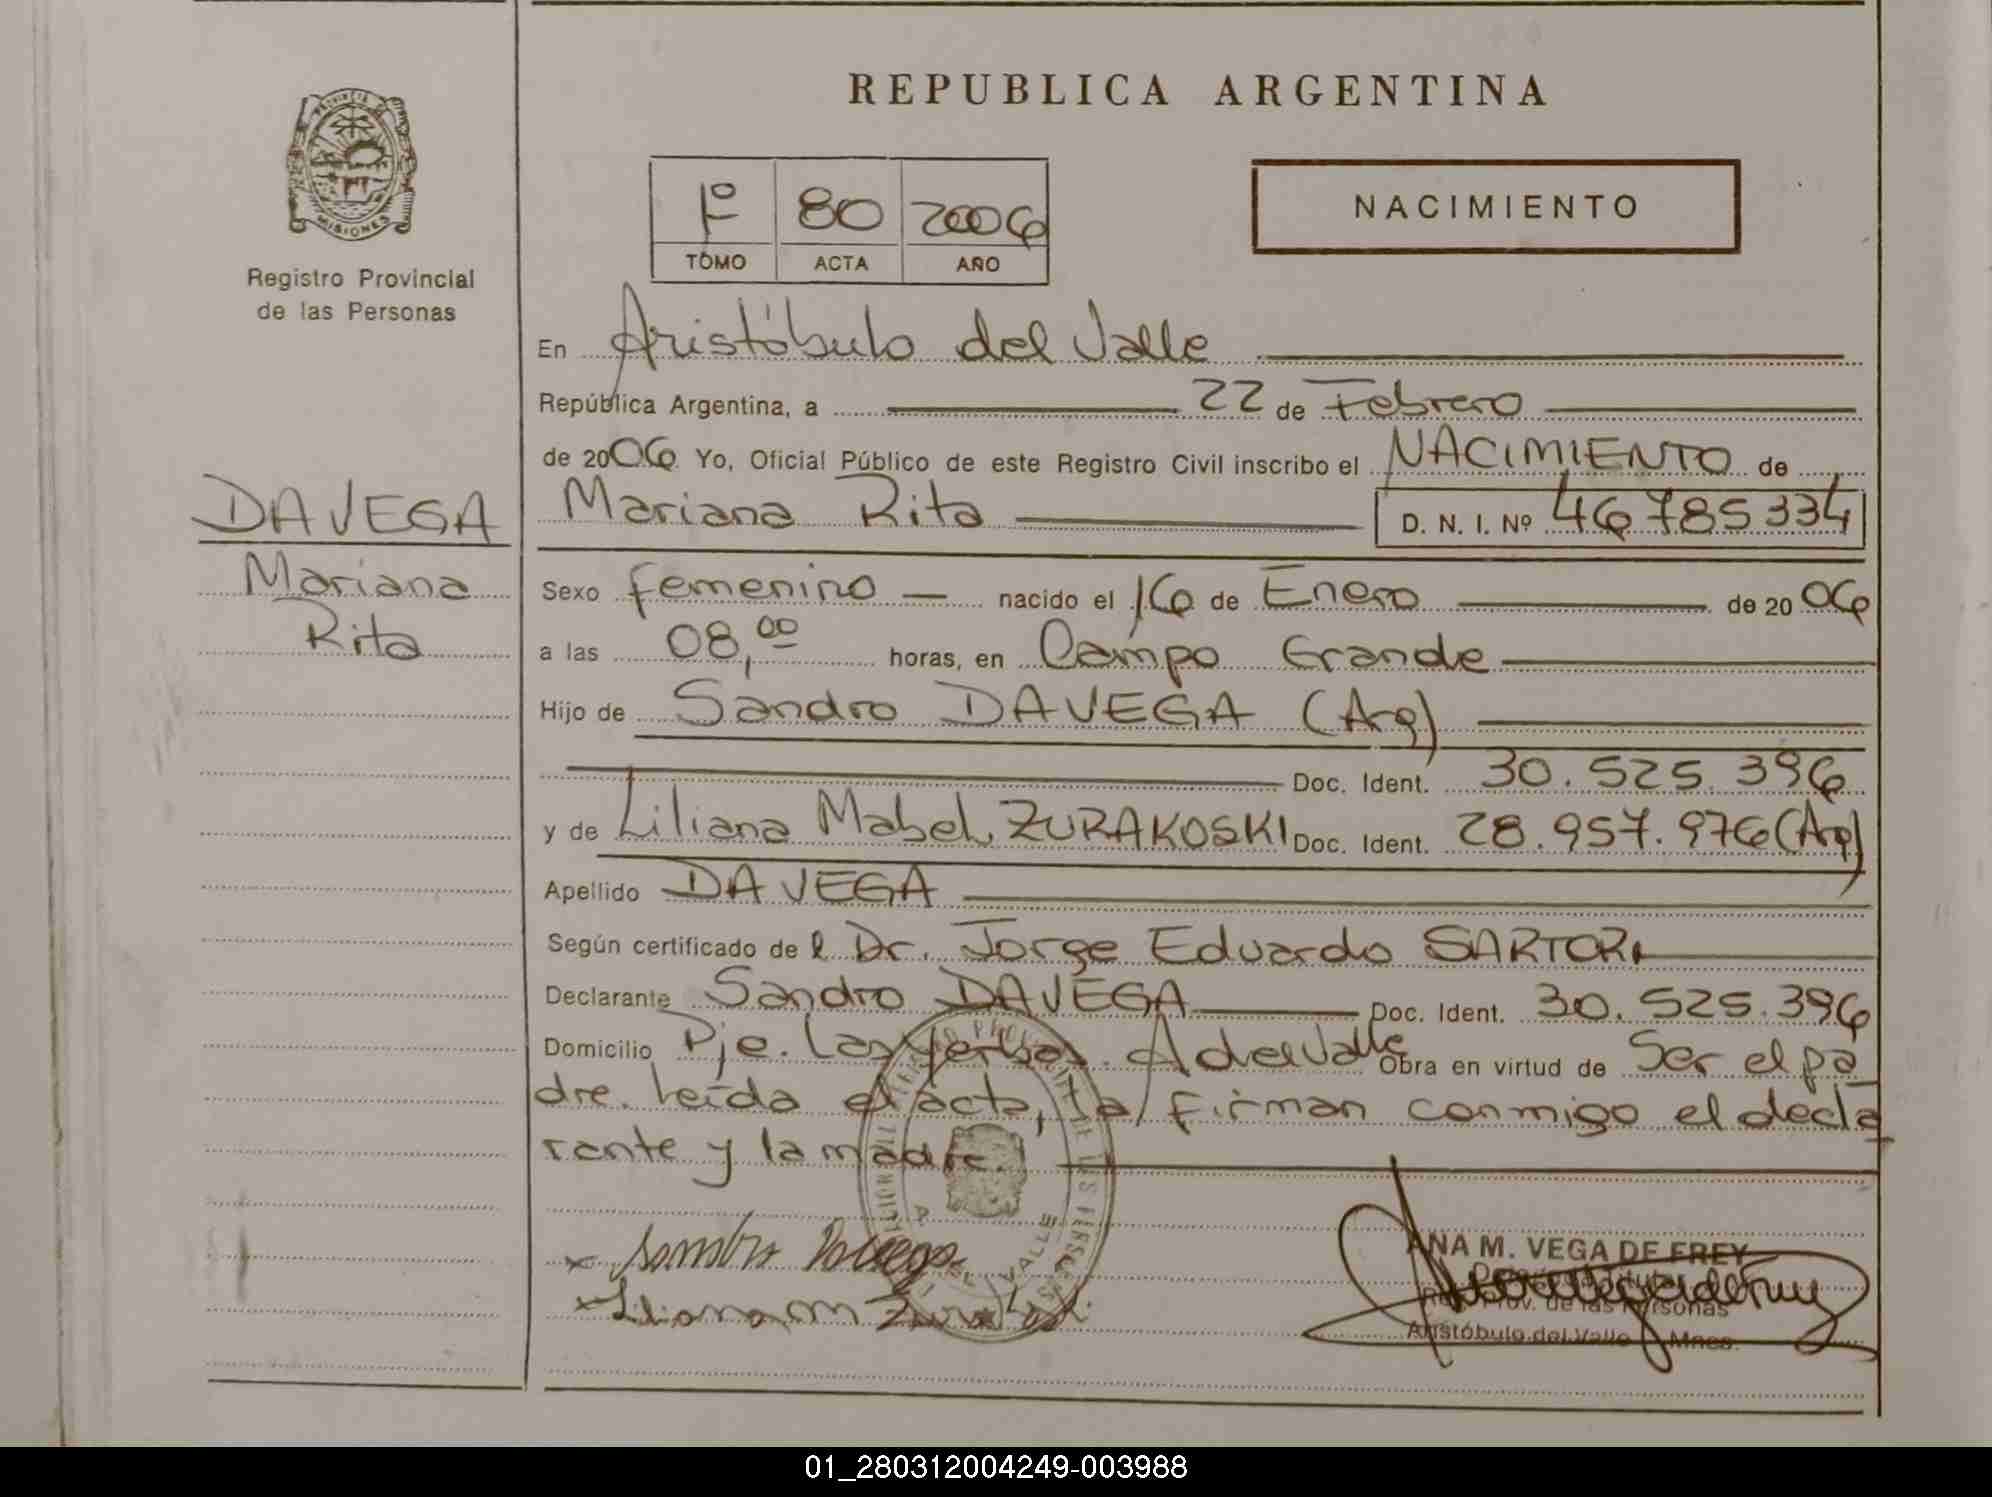 REPUBLICA ARGENTINA
PROVINCIA DE
MISIONES
Registro Provincial
de las Personas
1º 80 2006
TOMO ACTA AÑO
NACIMIENTO
DA VEGA
Mariana
Rita
En Aristóbulo del Valle
República Argentina, a 22 de Febrero
de 2006 Yo, Oficial Público de este Registro Civil inscribo el NACIMIENTO de
Mariana Rita D. N. I. Nº 46785334
Sexo femenino nacido el 16 de Enero de 2006
a las 08,00 horas, en Campo Grande
Hijo de Sandro DA VEGA (Arg)
Doc. Ident. 30.525.396
y de Liliana Mabel ZURAKOSKI Doc. Ident. 28.957.976 (Arg)
Apellido DA VEGA
Según certificado de l Dr. Jorge Eduardo SARTORI
Declarante Sandro DA VEGA Doc. Ident. 30.525.396
Domicilio Pje. Las Yerbas. A del Valle Obra en virtud de Ser el pa
dre. Leída el acta, la firman conmigo el decla
rante y la madre.
Sandro Davega
Liliana M
ANA M. VEGA DE FREY
Prov. de las Personas
Aristóbulo del Valle Mnes.
01_280312004249-003988